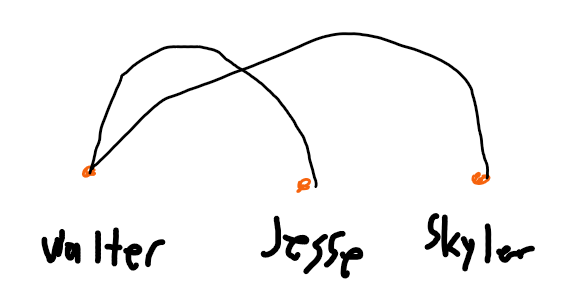 Walter Jesse Skyler